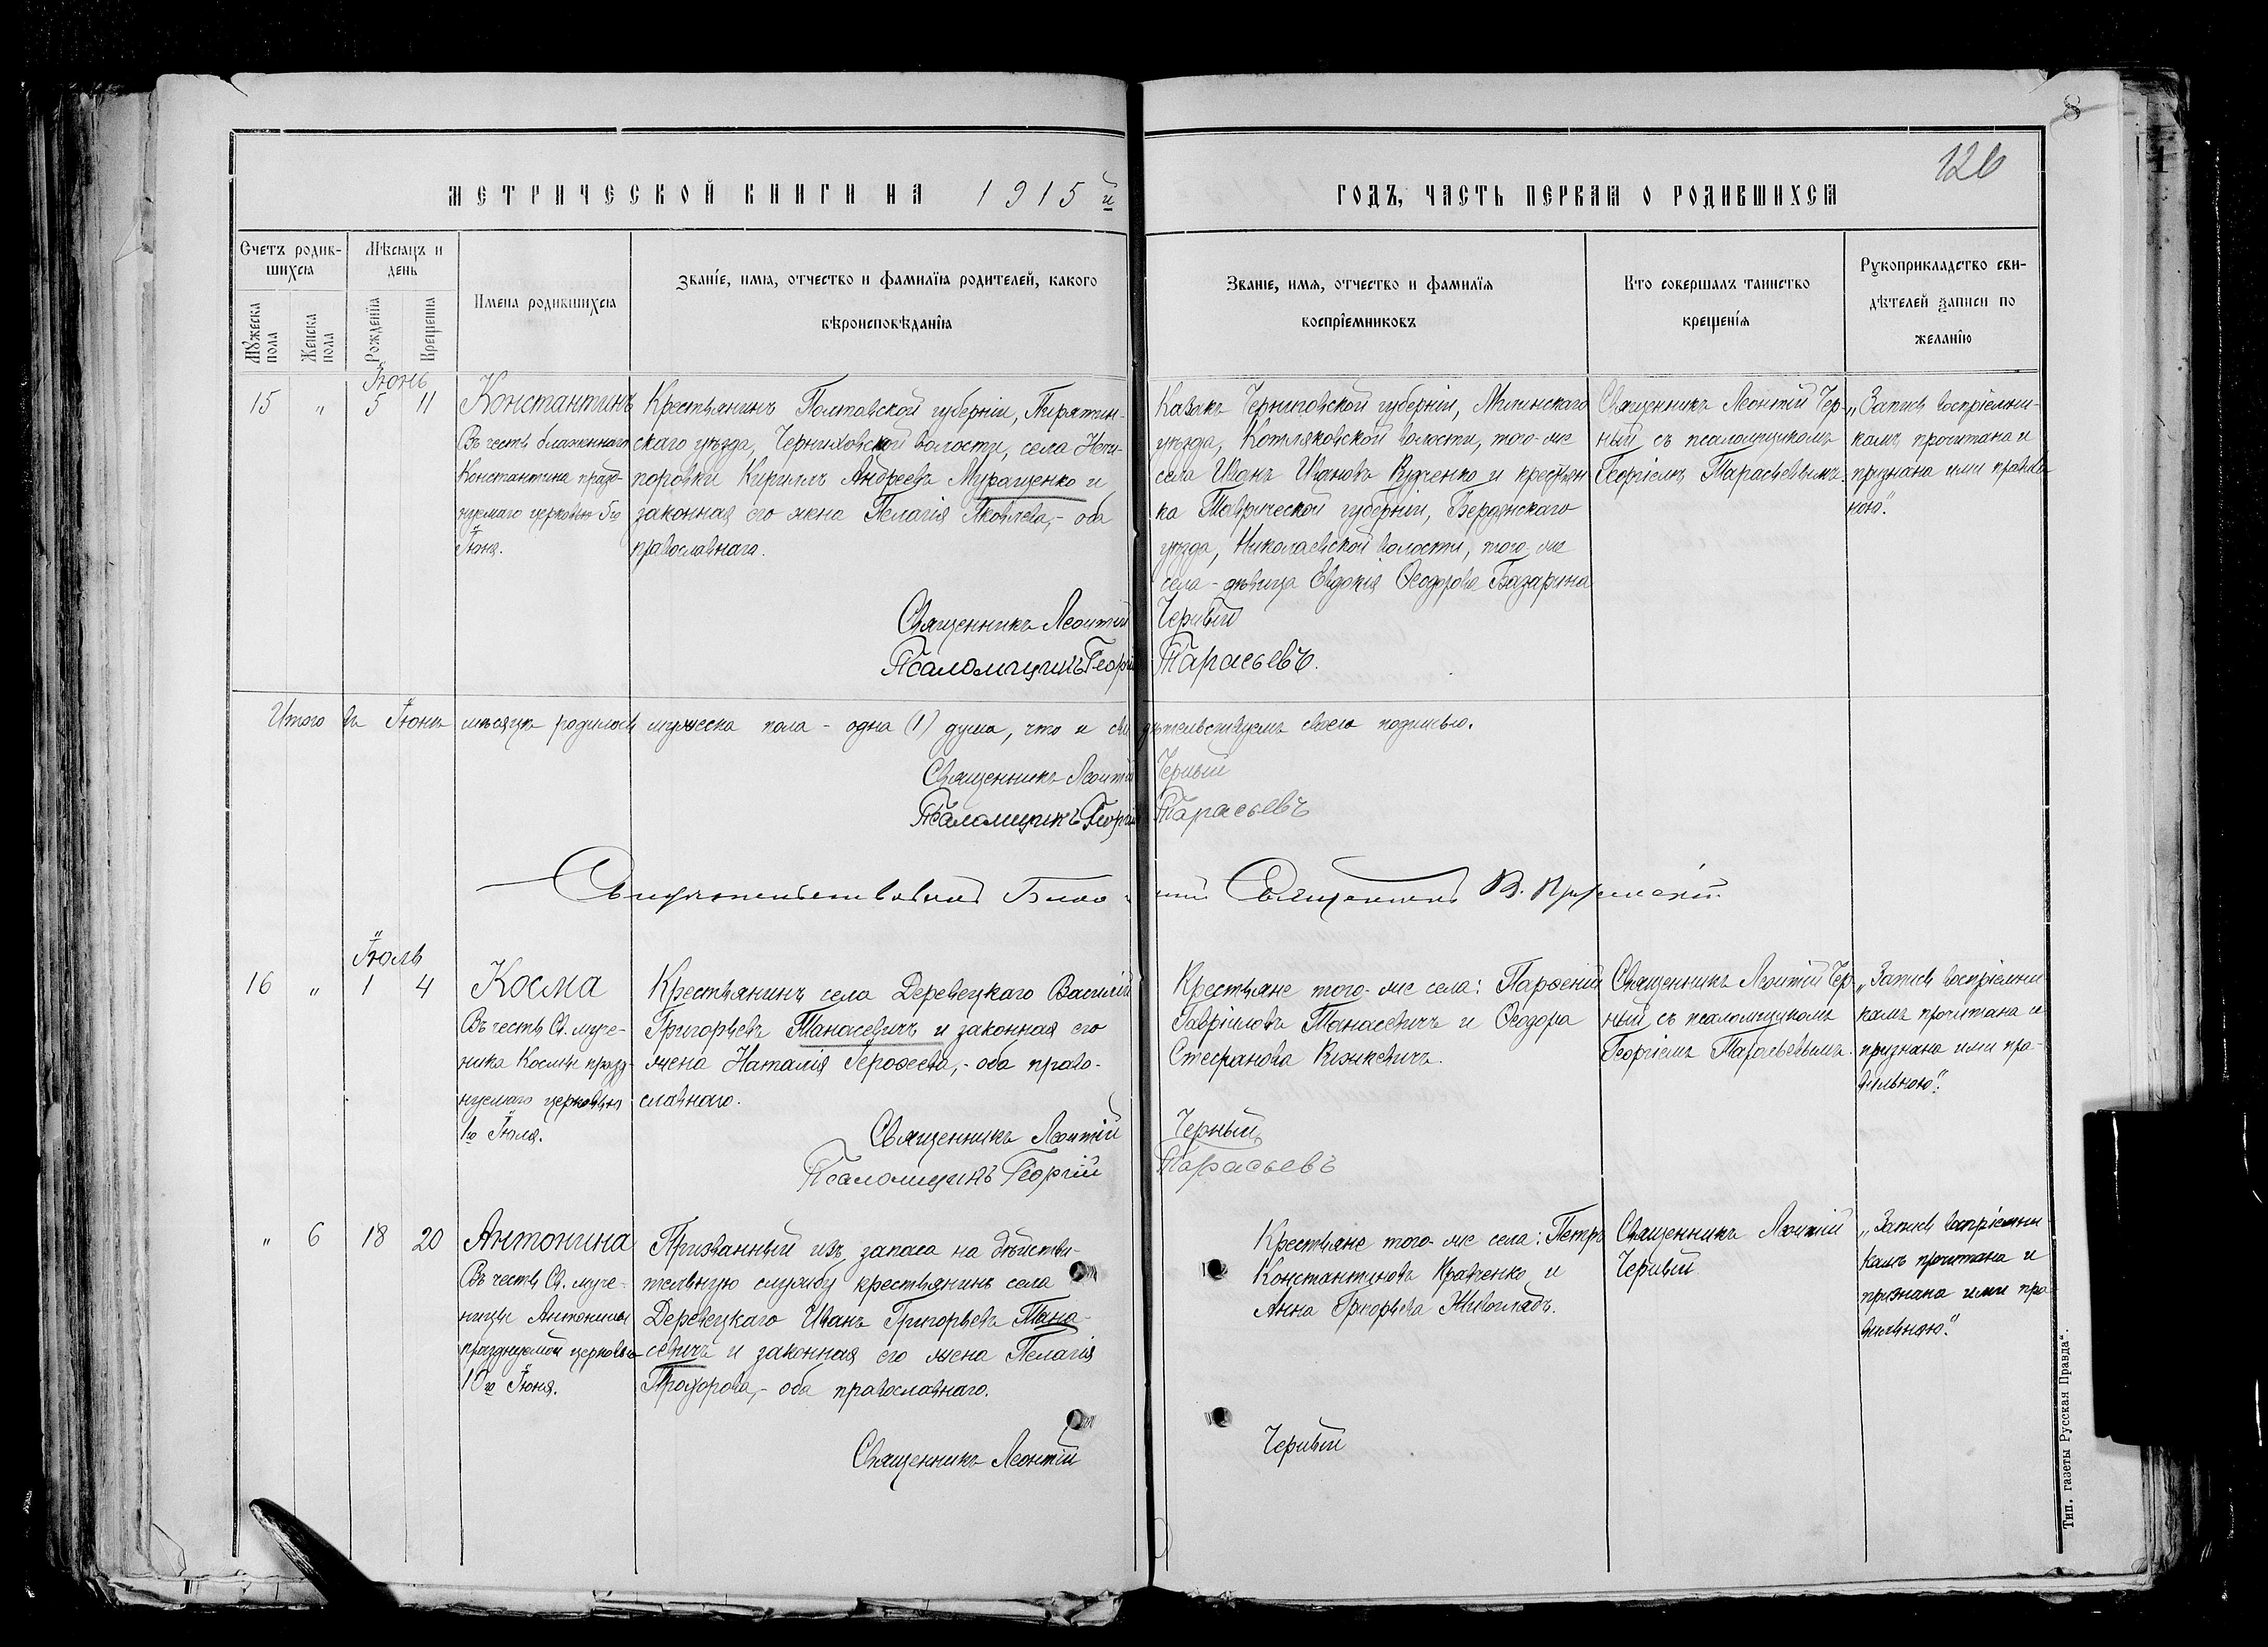 8
126
МЕТРИЧЕСКОЙ КНИГИ НА 1915 й ГОДЪ, ЧАСТЬ ПЕРВАЯ О РОДИВШИХСЯ
Счетъ родив-
шихся
Мужеска пола
Женска пола
Мѣсяцъ и
день
Рожденїя
Крещенїя
Имена родившихся
Званїе, имя, отчество и фамилїя родителей, какого
вѣроисповѣданїя
Званїе, имя, отчество и фамилїя
воспрїемниковъ
Кто совершалъ таинство
крещенїя
Рукоприкладство сви-
дѣтелей записи по
желанїю
Іюнь
15 " 5 11
Константинъ
Въ честь блаженнаго
Константина празд-
нуемаго церковью 5го
Іюня.
Крестьянинъ Полтавской губерніи, Пирятин-
скаго уѣзда, Черниховской волости, села
поровки Кириллъ Андреевъ Муращенко и
законная его жена Пелагія Яковлева,- оба
православнаго.
Казакъ Черниговской губерніи, Мглинскаго
уѣзда, Котляковской волости, того-же
села Иванъ Ивановъ Рудченко и крестьян
ка Таврической губерніи, Бердянскаго
уѣзда, Николаевской волости, того-же
села - дѣвица Евдокія Ѳеодорова Базарина
Священникъ Леонтій Чер-
ный съ псаломщикомъ
Георгіемъ Тарасьевымъ.
„Запись воспріемни-
камъ прочитана и
признана ими правиль
ною".
Священникъ Леонтій Черный
Псаломщикъ Георгій Тарасьевъ.
Итого въ Іюнѣ мѣсяцѣ родилось мужеска пола - одна (1) душа, что и свидѣтельствуемъ своею подписью.
Священникъ Леонтій Черный
Псаломщикъ Георгій Тарасьевъ
Священникъ В.
Іюль
16 " 1 4
Косма
Въ честь Св. муче-
ника Космы празд-
нуемаго церковью
1го Іюля.
Крестьянинъ села Деревецкаго Василій
Григорьевъ Танасевичъ и законная его
жена Наталія Іероѳеева,- оба право-
славнаго.
Крестьяне того-же села: Парѳеній
Гавріиловъ Танасевичъ и Ѳеодора
Стефанова
Священникъ Леонтій Чер-
ный съ псаломщикомъ
Георгіемъ Тарасьевымъ.
„Запись воспріемни
камъ прочитана и
признана ими пра-
вильною".
Священникъ Леонтій Черный
Псаломщикъ Георгій Тарасьевъ
" 6 18 20
Антонина
Въ честь Св. муче-
ницы Антонины
празднуемой церковью
10го Іюня.
Призванный изъ запаса на дѣйстви-
тельную службу крестьянинъ села
Деревецкаго Иванъ Григорьевъ Тана-
севичъ и законная его жена Пелагія
Прохорова,- оба православнаго.
Крестьяне того-же села: Петръ
Константиновъ Кравченко и
Анна Григорьева Живоглядъ.
Священникъ Леонтій
Черный
„Запись воспріемни
камъ прочитана и
признана ими пра
вильною".
Священникъ Леонтій Черный
Тип. газеты Русская Правда".